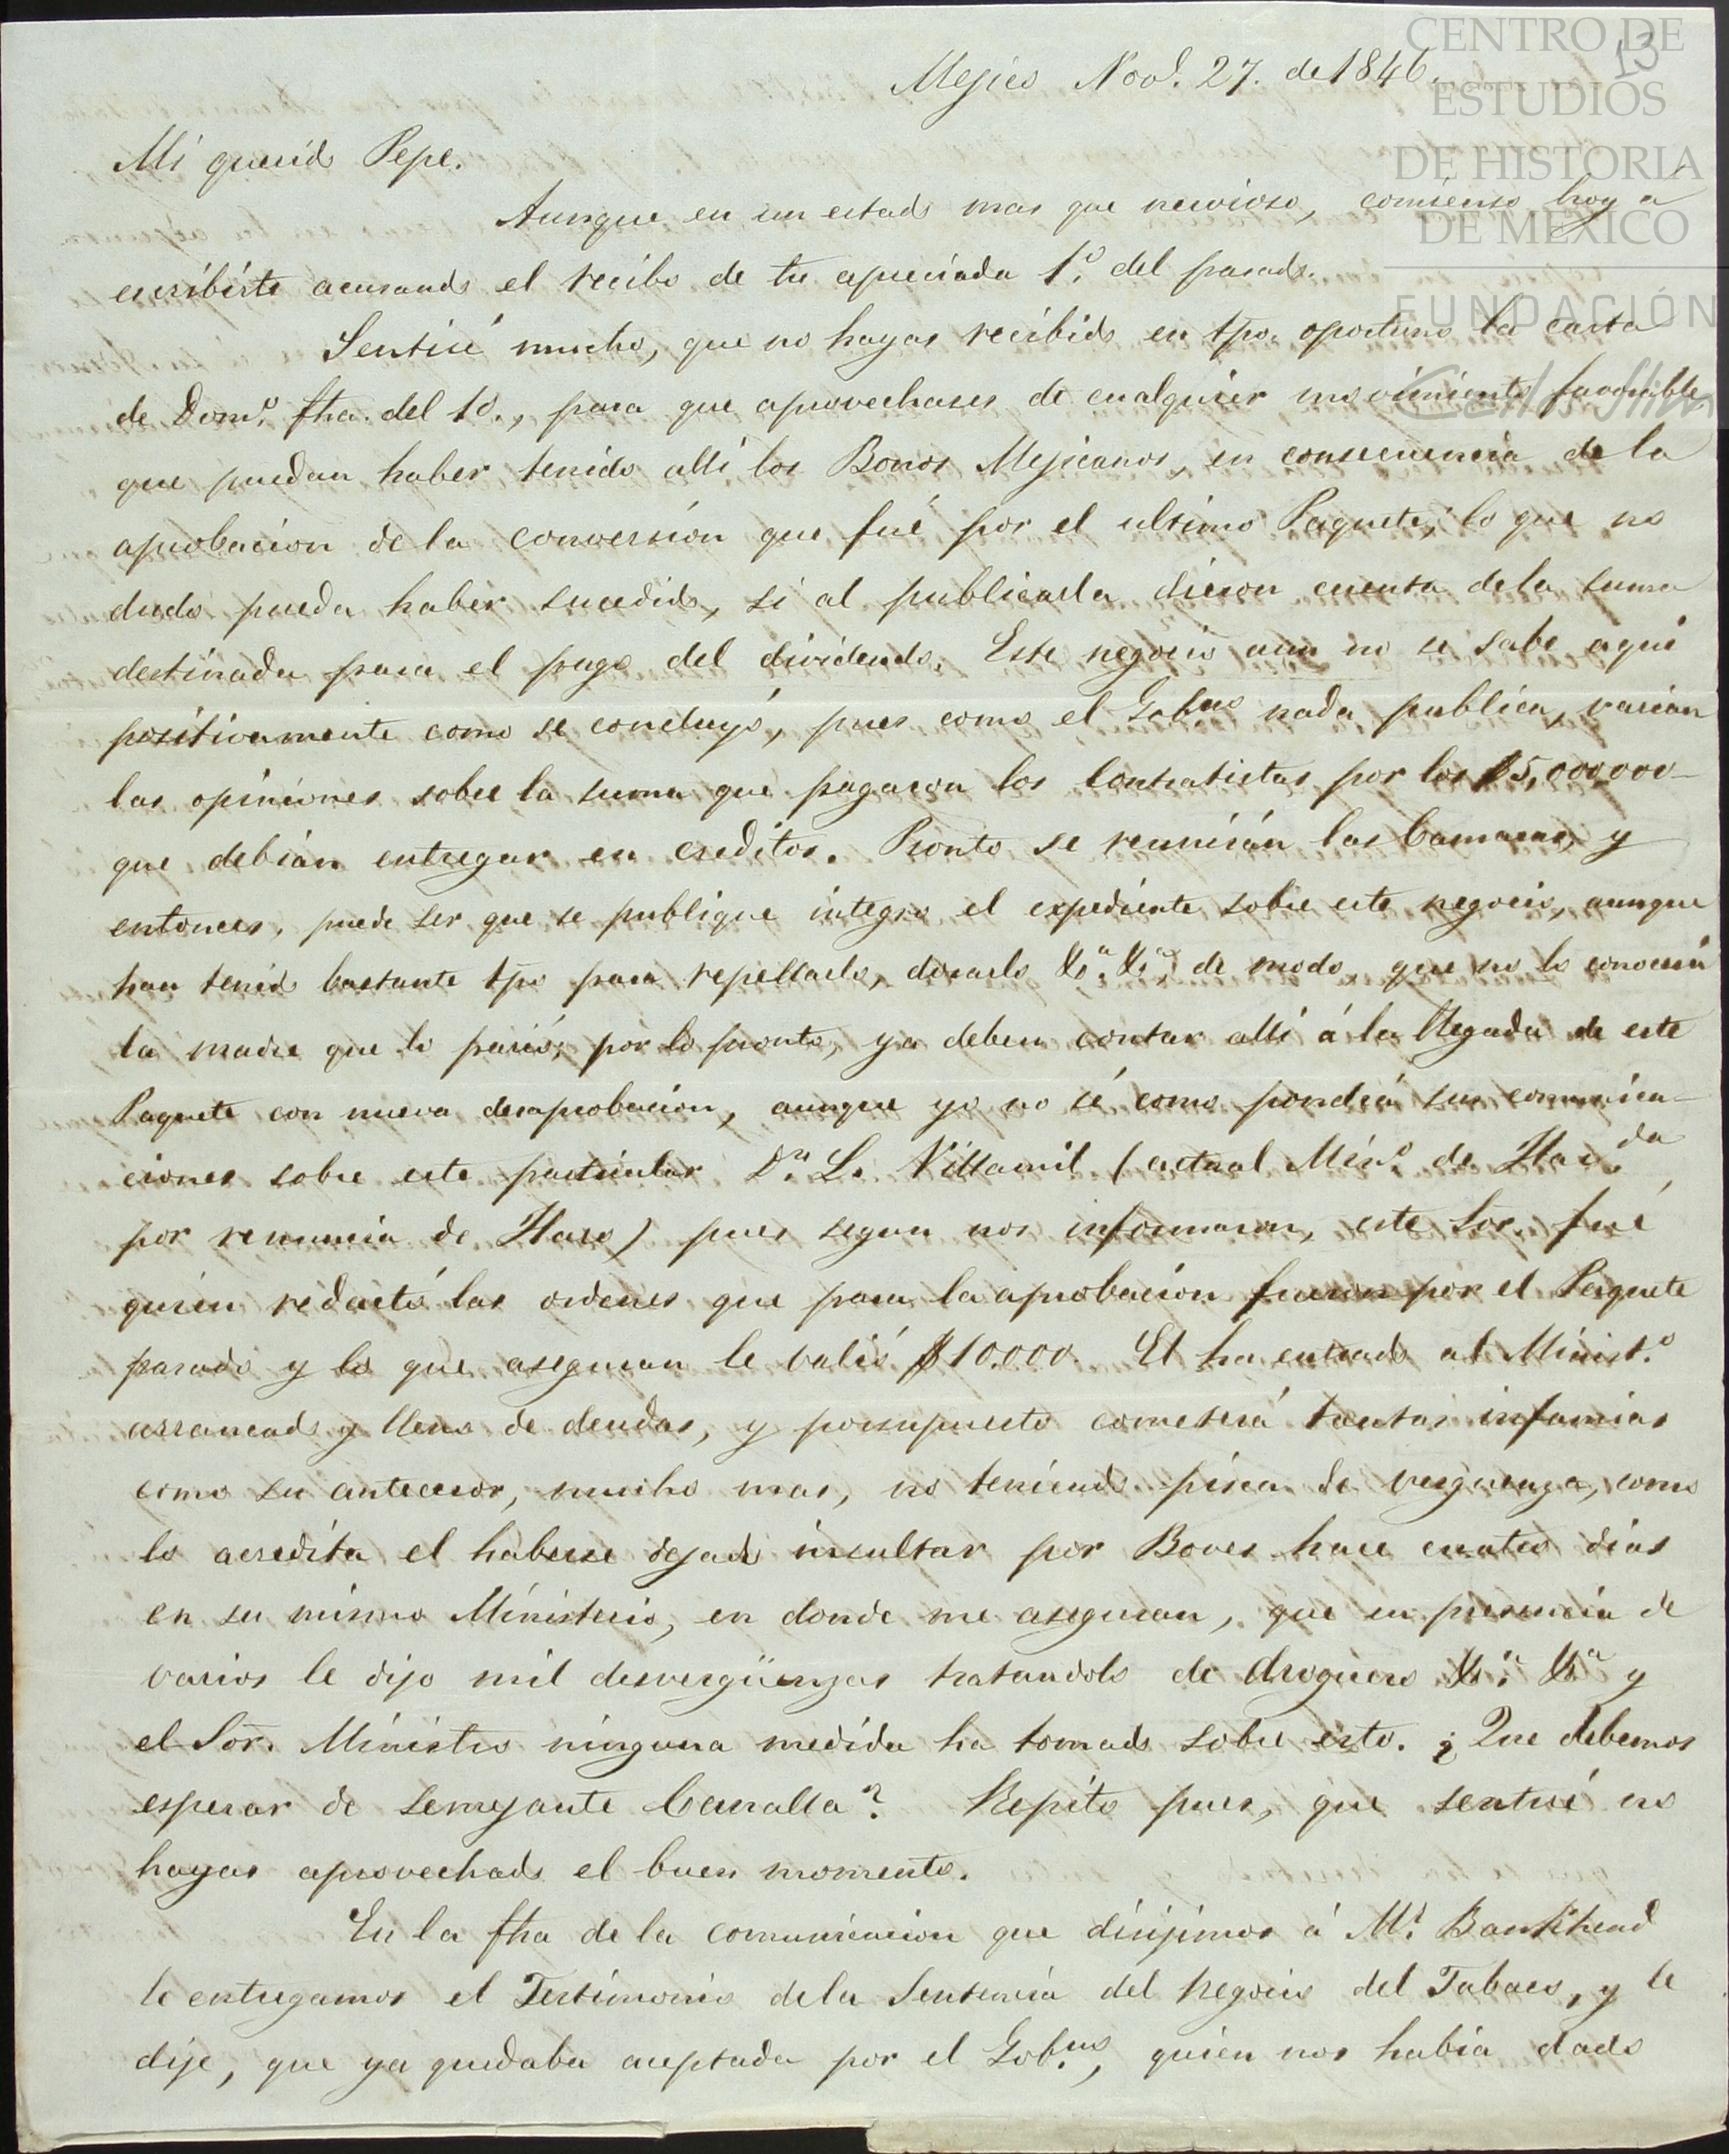 CENTRO DE
ESTUDIOS
DE HISTORIA
DE MÉXICO
FUNDACIÓN
Carlos Slim
13
Mejico Nove. 27. de 1846.
Mi querido Pepe.
Aunque en un estado mas que nervioso, comienso hoy á
escribirte acusando el recibo de tu apreciada 1º. del pasado.
Sentiré mucho, que no hayas recibido en tpo. oportuno la carta
de Domo. fha. del 1º., para que aprovechases de cualquier movimiento favorable
que puedan haber tenido allí los Bonos Mejicanos, en consecuencia de la
aprobacion de la conversion que fué por el ultimo Paquete; lo que no
dudo pueda haber sucedido, si al publicarla dieron cuenta de la suma
destinada para el pago del dividendo. Este negocio aun no se sabe aquí
positivamente como se concluyó, pues como el Gobno nada publica, varian
las opiniones sobre la suma que pagaron los Contratistas por los $5,000000
que debian entregar en creditos. Pronto se reunirán las Camaras, y
entonces, puede ser que se publique integro el expediente sobre este negocio, aunque
han tenido bastante tpo para repellarlo, dorarlo &a. &a. de modo, que no lo conocerá
la madre que lo parió; por lo pronto, ya deben contar allí á la llegada de este
Paquete con nueva desaprobacion, aunque yo no sé como pondrá sus comunica-
ciones sobre este particular Dn. L. Villamil (actual Mino. de Hacda.
por renuncia de Haro) pues segun nos informaron, este Sor. fué
quien redactó las ordenes que para la aprobacion fueron por el Paquete
pasado y lo que aseguran le valió $10.000. El ha entrado al Ministo.
arrancado y lleno de deudas, y porsupuesto cometerá tantas infamias
como su antecesor, mucho mas, no teniendo pisca de verguenza, como
lo acredita el haberse dejado insultar por Boves hace cuatro dias
en su mismo Ministerio, en donde me aseguran, que en presencia de
varios le dijo mil desvergüenzas tratandolo de droguero &a. &a y
el Sor. Ministro ninguna medida ha tomado sobre esto. ¿Que debemos
esperar de semejante Canalla? Repito pues, que sentiré no
hayas aprovechado el buen momento.
En la fha de la comunicacion que dirijimos á Mr. Bankhead
le entregamos el Testimonio de la Sentencia del negocio del Tabaco, y le
dije, que ya quedaba aceptada por el Gobno., quien nos habia dado